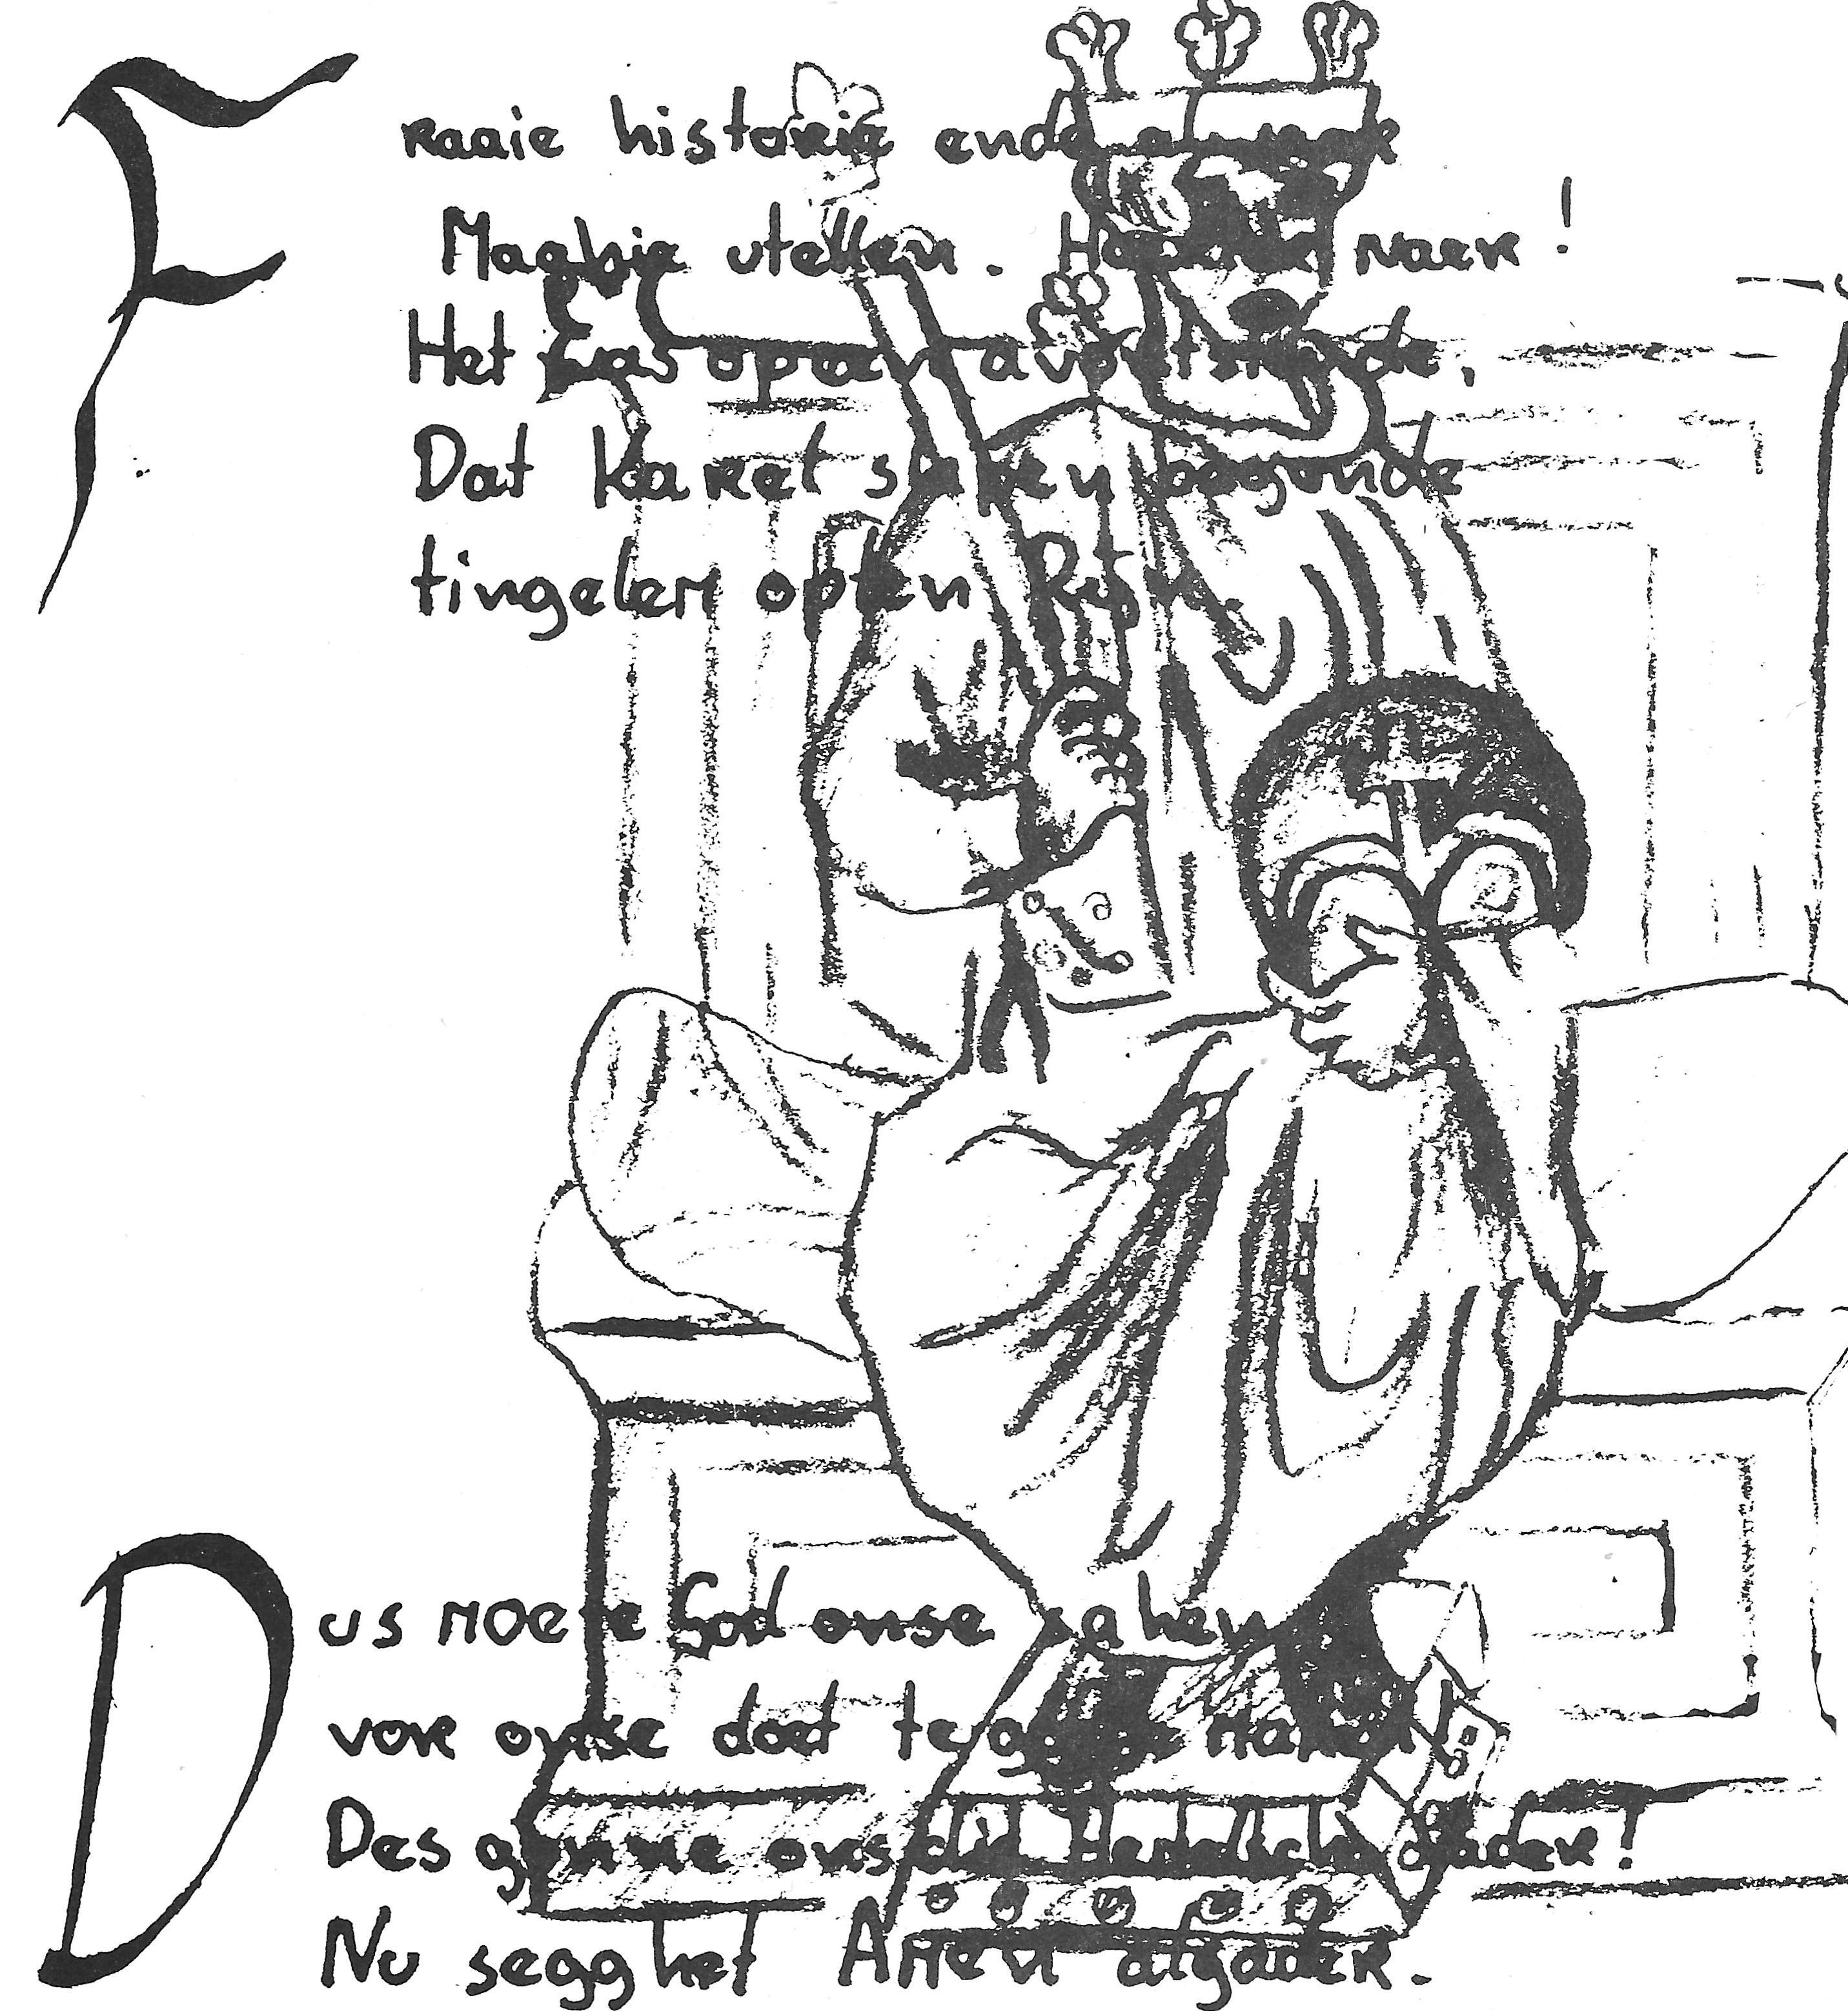 Fraaie historie ende al waer
Maghic vtellen. Hoeret naer!
Het was op enen avontstonde,
Dat Karel slapen begonde
tingelem opten Rijn.
Dus moete God onse saken
vor onse doet te goede maken!
Des gonne ons die Hemelsche Vader!
Nu segghet Amen algader.